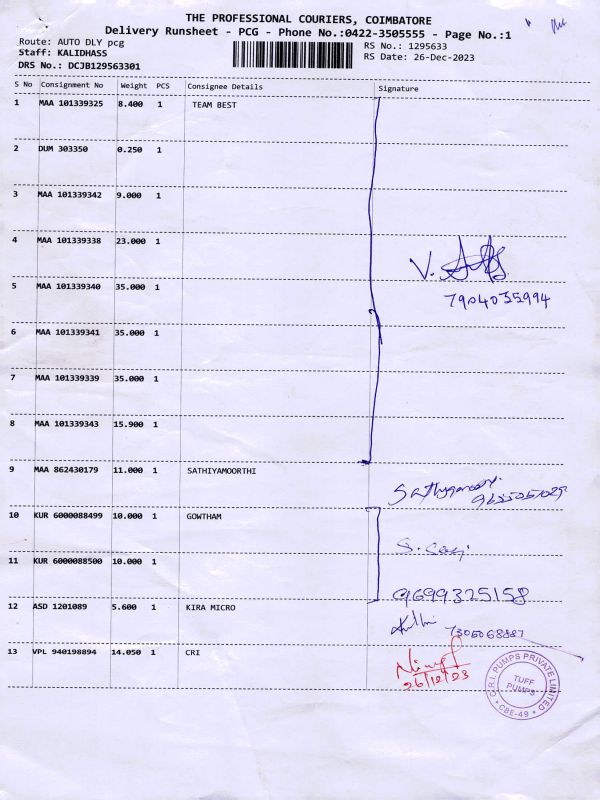 THE PROFESSIONAL COURIERS, COIMBATORE
Delivery Runsheet - PCG - Phone No.:0422-3505555 - Page No.:1
Route: AUTO DLY pcg
RS No.: 1295633
Staff: KALIDHASS
RS Date: 26-Dec-2023
DRS No.: DCJB129563301
S No Consignment No Weight PCS Consignee Details Signature
1 MAA 101339325 8.400 1 TEAM BEST
2 DUM 303350 0.250 1
3 MAA 101339342 9.000 1
4 MAA 101339338 23.000 1
V.
5 MAA 101339340 35.000 1
7904035994
6 MAA 101339341 35.000 1
7 MAA 101339339 35.000 1
8 MAA 101339343 15.900 1
9 MAA 862430179 11.000 1 SATHIYAMOORTHI
10 KUR 6000088499 10.000 1 GOWTHAM
11 KUR 6000088500 10.000 1
9699325158
12 ASD 1201089 5.600 1 KIRA MICRO
13 VPL 940198894 14.050 1 CRI
26/12/23
C.R.I. PUMPS PRIVATE LIMITED
TUFF
PUMPS
* CBE-49 *